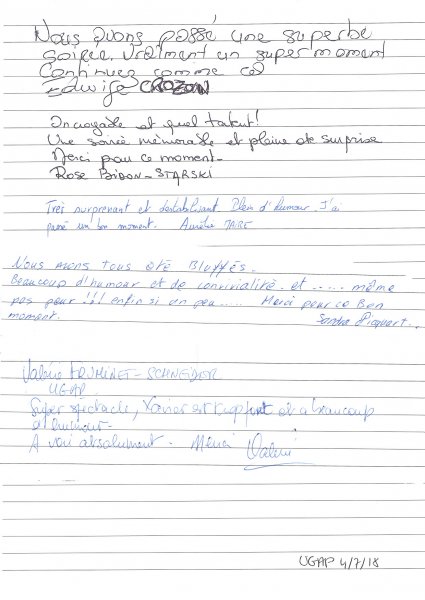 Nous avons passé une superbe
soirée. Vraiment un super moment
Continuez comme ça
Edwige CROZON
Incroyable et quel talent!
Une soirée mémorable et pleine de surprise
Merci pour ce moment-
Rose BIDON-STARSKI
Très surprenant et destabilisant. Plein d'humour. J'ai
passé un bon moment. Aurélie
Nous avons tous été Bluffés.
Beaucoup d'humour et de convivialité et ..... même
pas peur !!! enfin si un peu .... Merci pour ce Bon
moment. Sandra Piquart.
Valérie FRUMINET-SCHNEIDER
UGAP
Super spectacle, Xavier est trop fort et a beaucoup
d'humour-
A voir absolument. Merci Valérie
UGAP 4/7/18